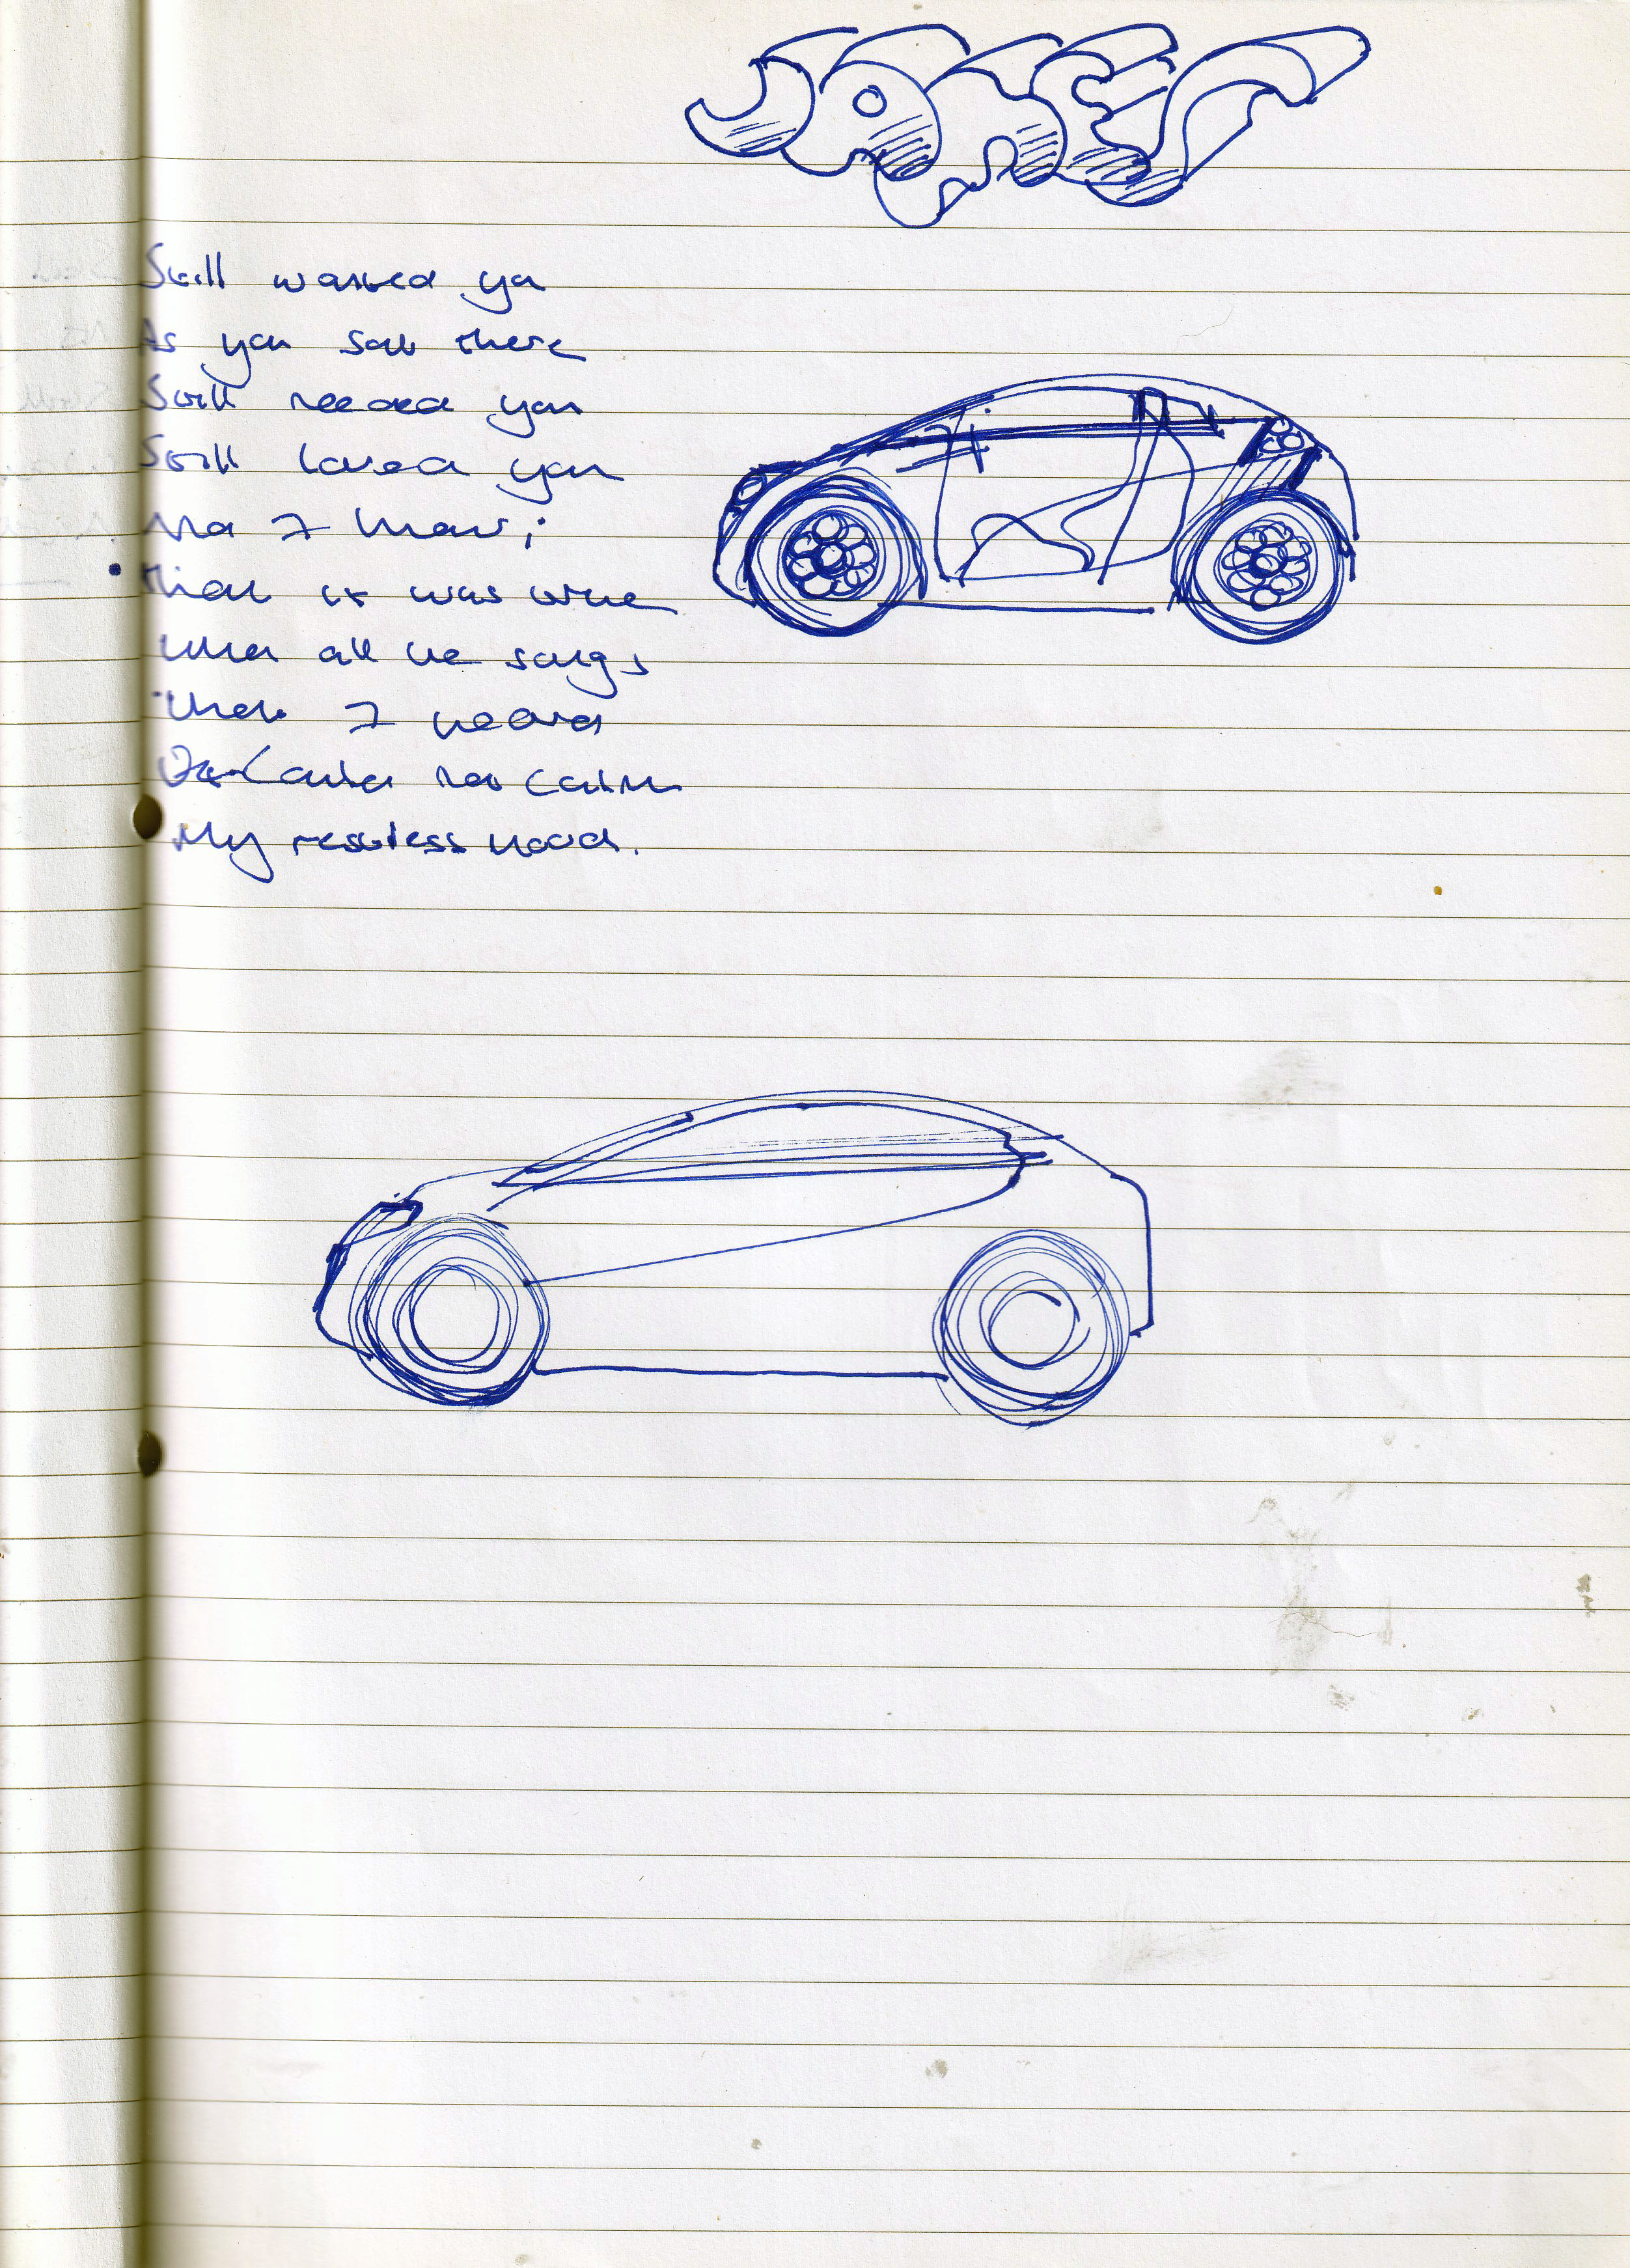 JAMES
Still wanted you
As you sat there
Still needed you
Still loved you
And I knew;
that it was true
When all the songs
That I heard
Could not calm
My restless mood.